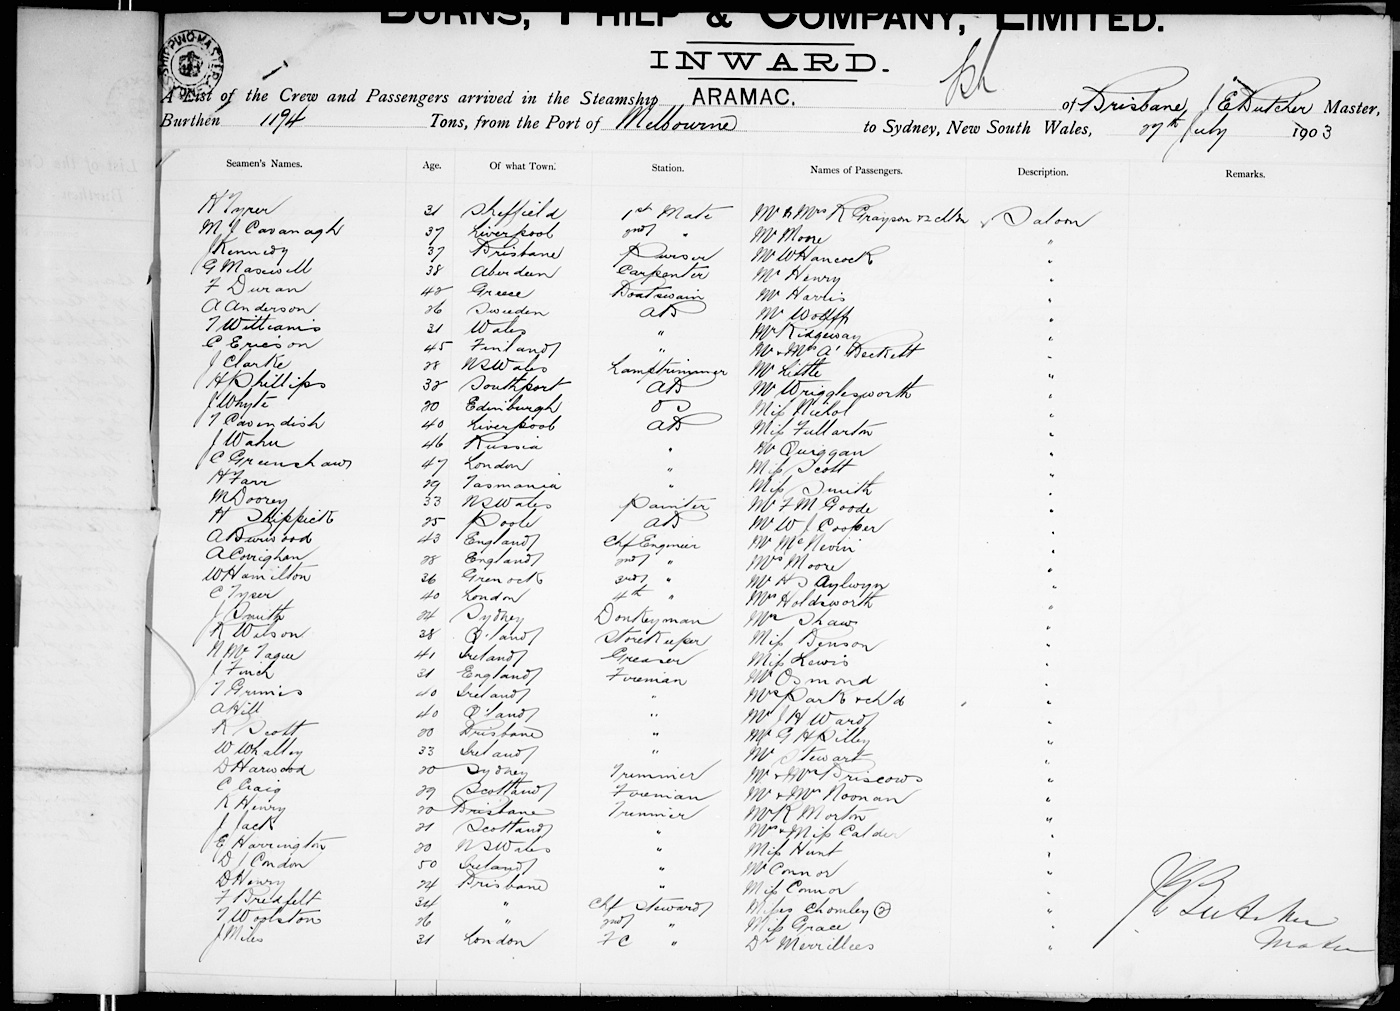 BURNS, PHILP & COMPANY, LIMITED.
INWARD.
SHIPPING MASTER
A List of the Crew and Passengers arrived in the Steamship ARAMAC. of Brisbane J E Butcher Master,
Burthen 1194 Tons, from the Port of Melbourne to Sydney, New South Wales, 27th July 1903
Seamen's Names. Age. Of what Town. Station. Names of Passengers. Description. Remarks.
H Tyrer 31 Sheffield 1st Mate Mr & Mrs R Grayson & 2 chldn Saloon
M J Cavanagh 37 Liverpool 2nd " Mr Moore "
J Kennedy 37 Brisbane Purser Mr W Hancock "
G Maxwell 38 Aberdeen Carpenter Mr Henry "
F Duran 42 Greece Boatswain Mr Harris "
A Anderson 26 Sweeden AB Mr Wolff "
T Williams 31 Wales " Mr Ridgeway "
C Ericson 45 Finland " Mr & Mrs A' Beckett "
J Clarke 28 NSWales Lamptrimmer Mr Little "
H Phillips 32 Southport AB Mr Wrigglesworth "
J Whyte 20 Edinburgh OS Miss Nichol "
T Cavendish 40 Liverpool AB Miss Fullarton "
J Wahu 46 Russia " Mr Quiggan "
C Greenshaw 47 London " Miss Scott "
H Farr 29 Tasmania " Miss Smith "
M Doorey 33 NSWales Painter Mr F M Goode "
H Skippick 25 Poole AB Mr W J Cooper "
A Burwood 43 England Chf Engineer Mr McNevin "
A Corrighan 28 England 2nd " Mrs Moore "
W Hamilton 36 Grenock 3rd " Mr H S Aylwyn "
C Tyser 40 London 4th " Mrs Holdsworth "
J Smith 24 Sydney Donkeyman Mrs Shaw "
R Wilson 38 Q'land Storekeeper Miss Benson "
N McTague 41 Ireland Greaser Miss Lewis "
J Finch 31 England Fireman Mr Osmond "
T Grimes 40 Ireland " Mrs Park & chld "
A Hill 40 Q'land " Mr J H Ward "
R Scott 20 Brisbane " Mr G H Pilley "
W Whalley 33 Ireland " Mr Stewart "
D Harwood 20 Sydney Trimmer Mr & Mrs Briscows "
C Craig 29 Scotland Fireman Mr & Mrs Noonan "
R Henry 20 Brisbane Trimmer Mr R Morton "
J Jack 21 Scotland " Mrs & Miss Calder "
E Harrington 20 NSWales " Miss Hunt "
D J Condon 50 Ireland " Mr Connor "
D Henry 24 Brisbane " Miss Connor "
F Bredfelt 34 " Chf Steward Misses Chomley (2) "
T Woolston 26 " 2nd " Miss Grace "
J Miles 31 London FC " Dr Merrillees "
J E Butcher
Master